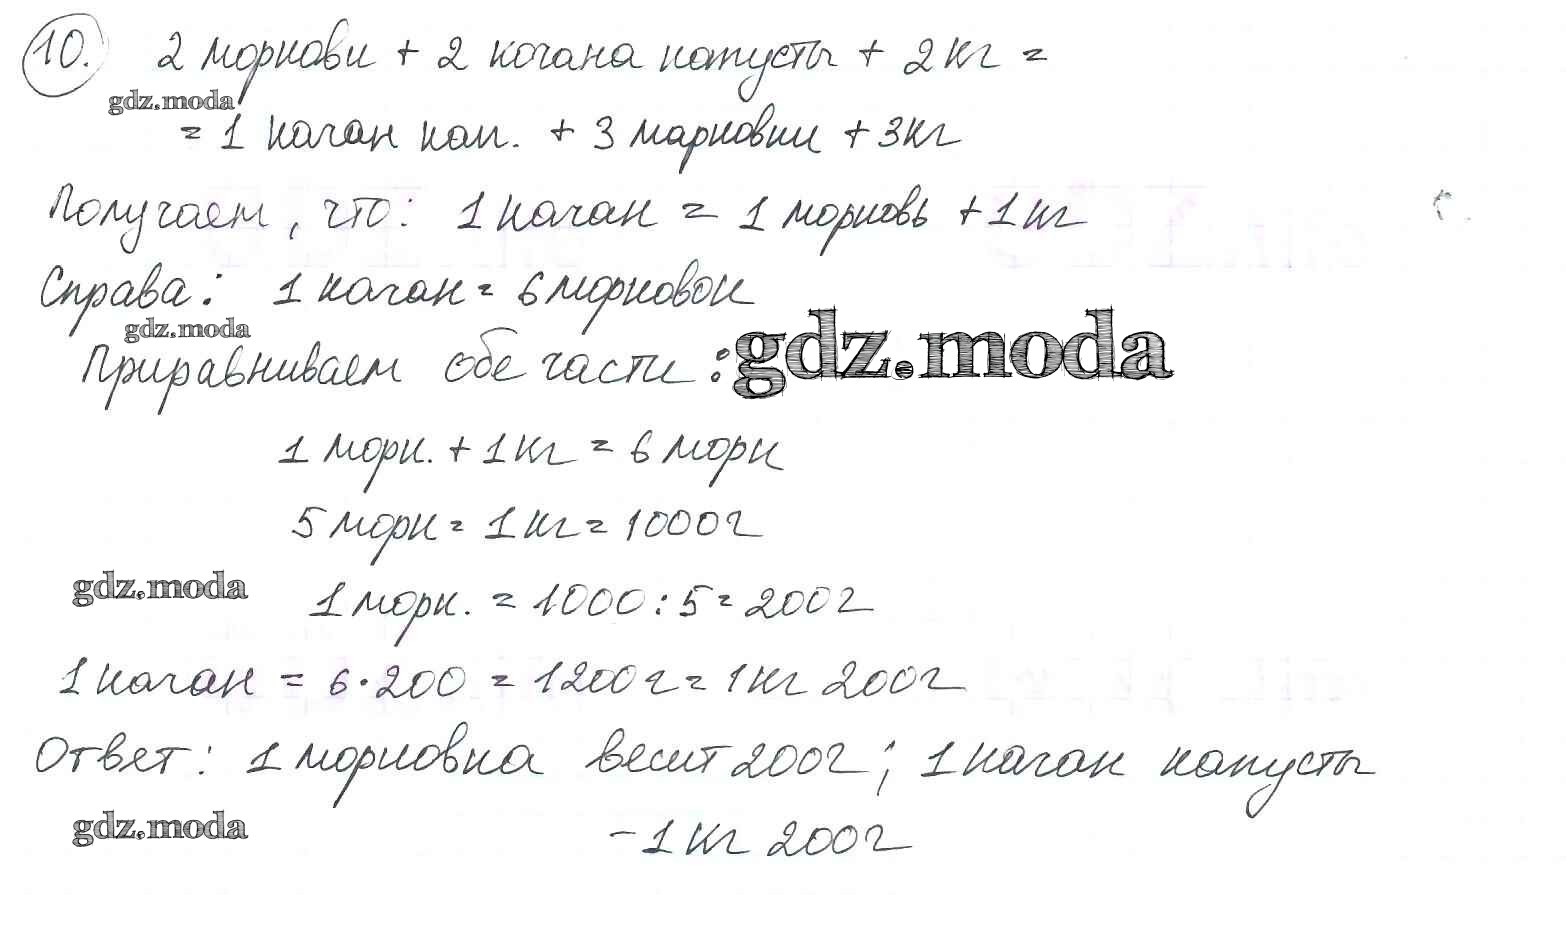 10. 2 моркови + 2 кочана капусты + 2 кг =
gdz.moda
= 1 качан кап. + 3 марковки + 3 кг
Получаем, что: 1 качан = 1 морковь + 1 кг
Справа: 1 качан = 6 морковок
gdz.moda
Приравниваем обе части:
gdz.moda
1 морк. + 1 кг = 6 морк
5 морк = 1 кг = 1000 г
gdz.moda
1 морк. = 1000 : 5 = 200 г
1 качан = 6 · 200 = 1200 г = 1 кг 200 г
Ответ: 1 морковка весит 200 г; 1 качан капусты
gdz.moda
– 1 кг 200 г